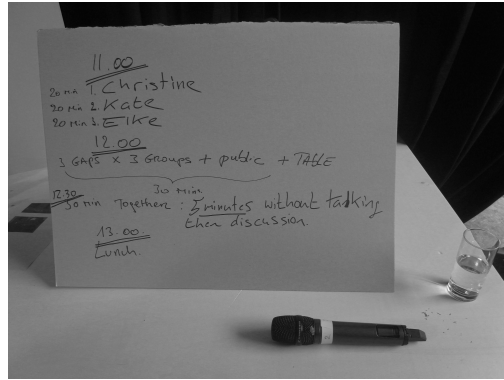 11.00
20 min 1. Christine
20 min 2. Kate
20 min 3. Elke
12.00
3 GAPS x 3 GROUPS + public + TABLE
30 min.
12.30
30 min Together : 5 minutes without talking
then discussion.
13.00.
Lunch.